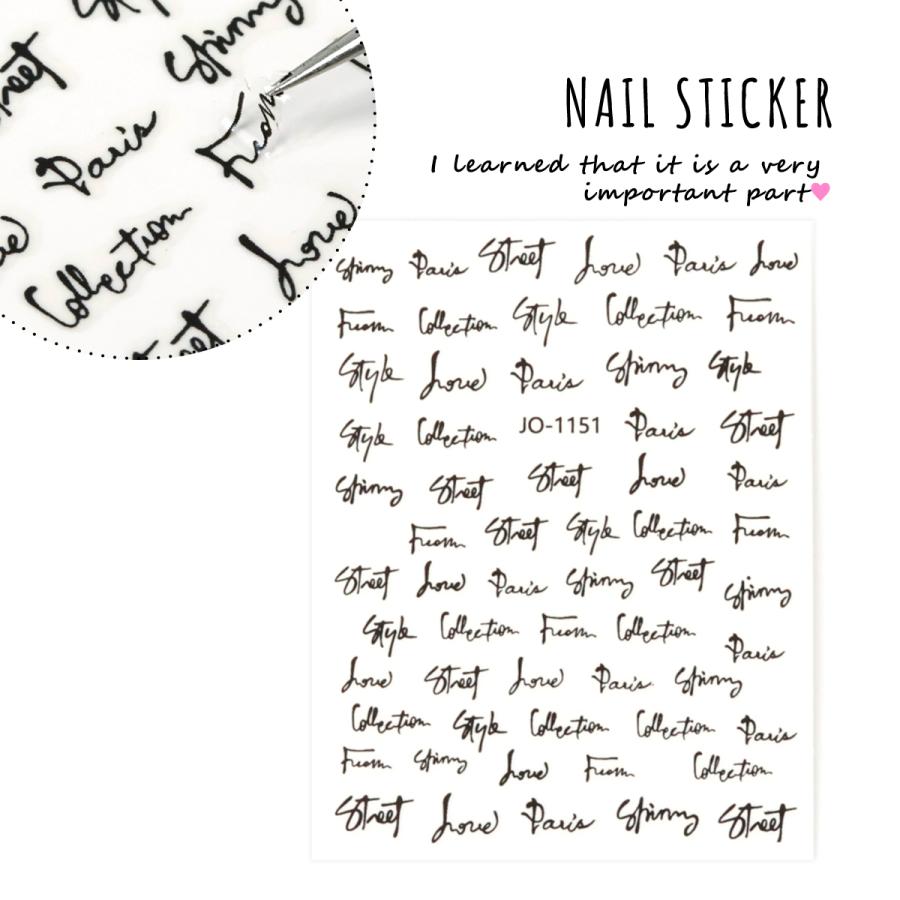 NAIL STICKER
I learned that it is a very
important part
Street
Spinny
Paris
From
Collection
Love
Spinny Paris Street Love Paris Love
From Collection Style Collection From
Style Love Paris Spinny Style
Style Collection JO-1151 Paris Street
Spinny Street Street Love Paris
From Street Style Collection From
Street Love Paris Spinny Street Spinny
Style Collection From Collection Paris
Love Street Love Paris Spinny
Collection Style Collection Collection Paris
From Spinny Love From Collection
Street Love Paris Spinny Street